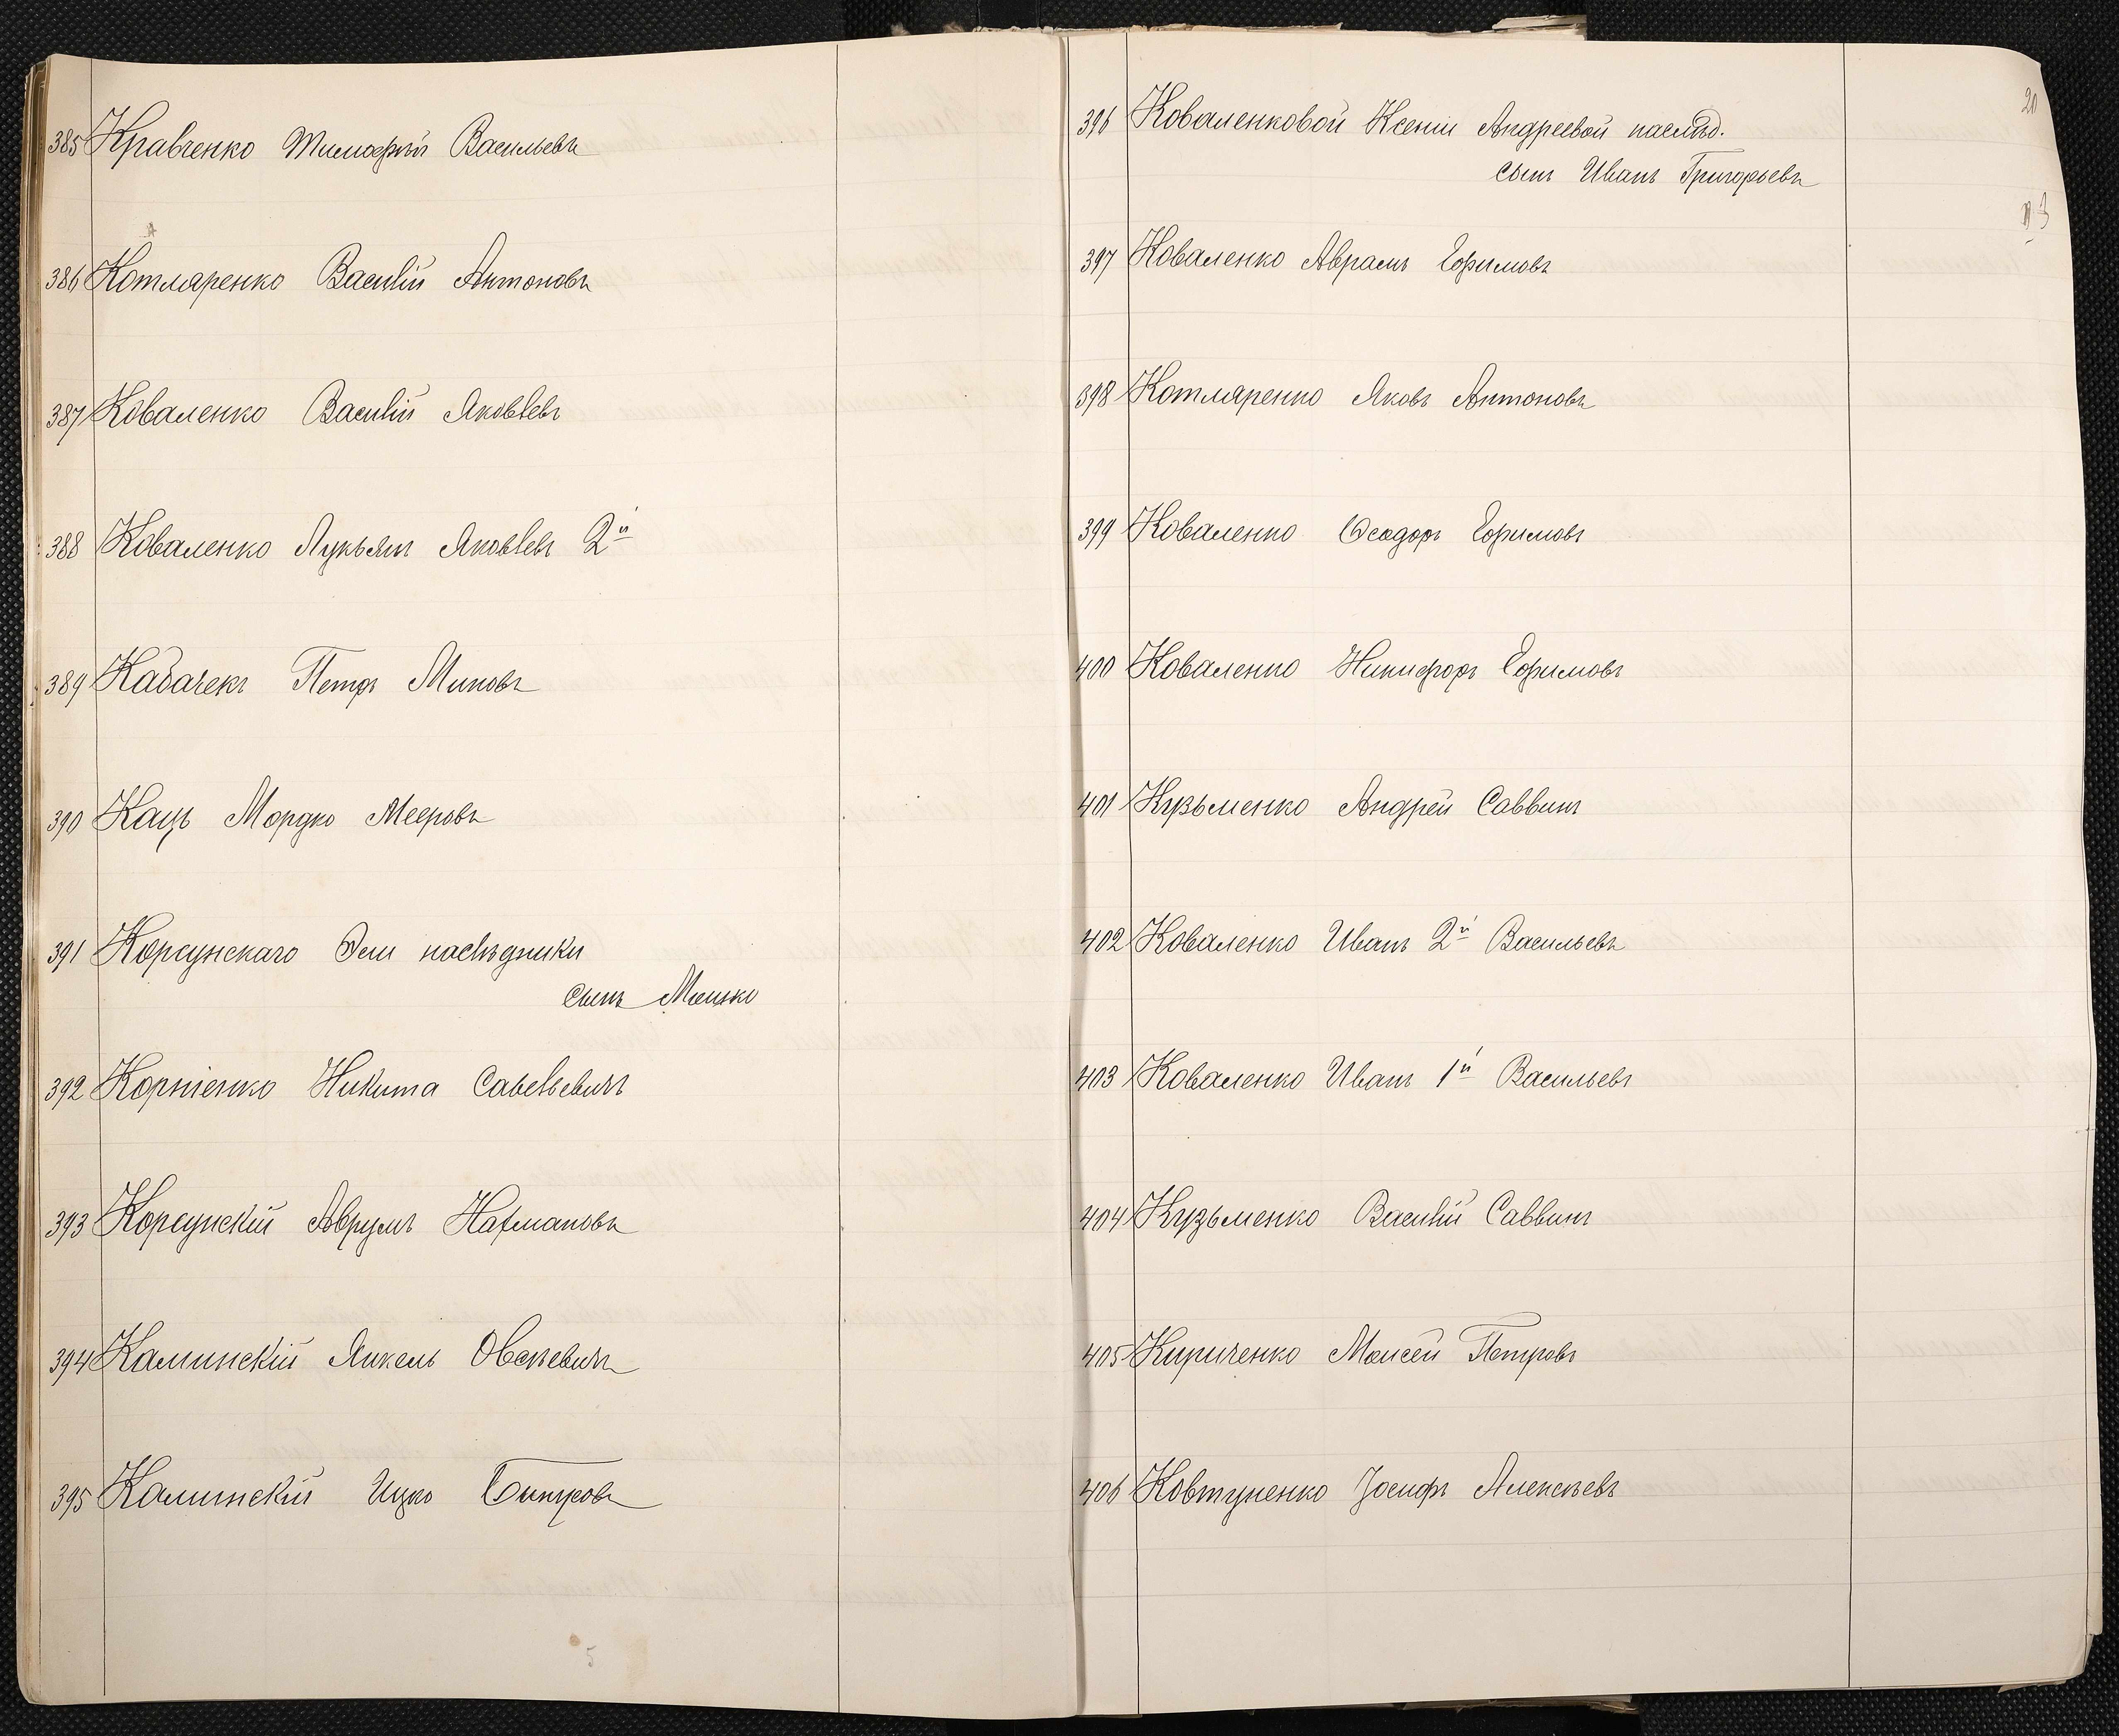 385 Кравченко Тимофѣй Васильевъ
386 Котляренко Василій Антоновъ
387 Коваленко Василій Яковлевъ
388 Коваленко Лукьянъ Яковлевъ 2й
389 Кабачекъ Петръ Миновъ
390 Кацъ Мордко Мееровъ
391 Корсунскаго Эли наслѣдники
сынъ Мошко
392 Корніенко Никита Савельевичъ
393 Корсунскій Аврумъ Нахмановъ
394 Калинскій Янкель Овсѣевичъ
395 Калинскій Ицко
5
20
396 Коваленковой Ксеніи Андреевой наслѣд.
сынъ Иванъ Григорьевъ
397 Коваленко Аврамъ Ефимовъ
398 Котляренко Яковъ Антоновъ
399 Коваленко Ѳеодоръ Ефимовъ
400 Коваленко Никифоръ Ефимовъ
401 Кузьменко Андрей Саввинъ
402 Коваленко Иванъ 2й Васильевъ
403 Коваленко Иванъ 1й Васильевъ
404 Кузьменко Василій Саввинъ
405 Кириченко Моисей Петровъ
406 Ковтуненко Іосифъ Алексѣевъ